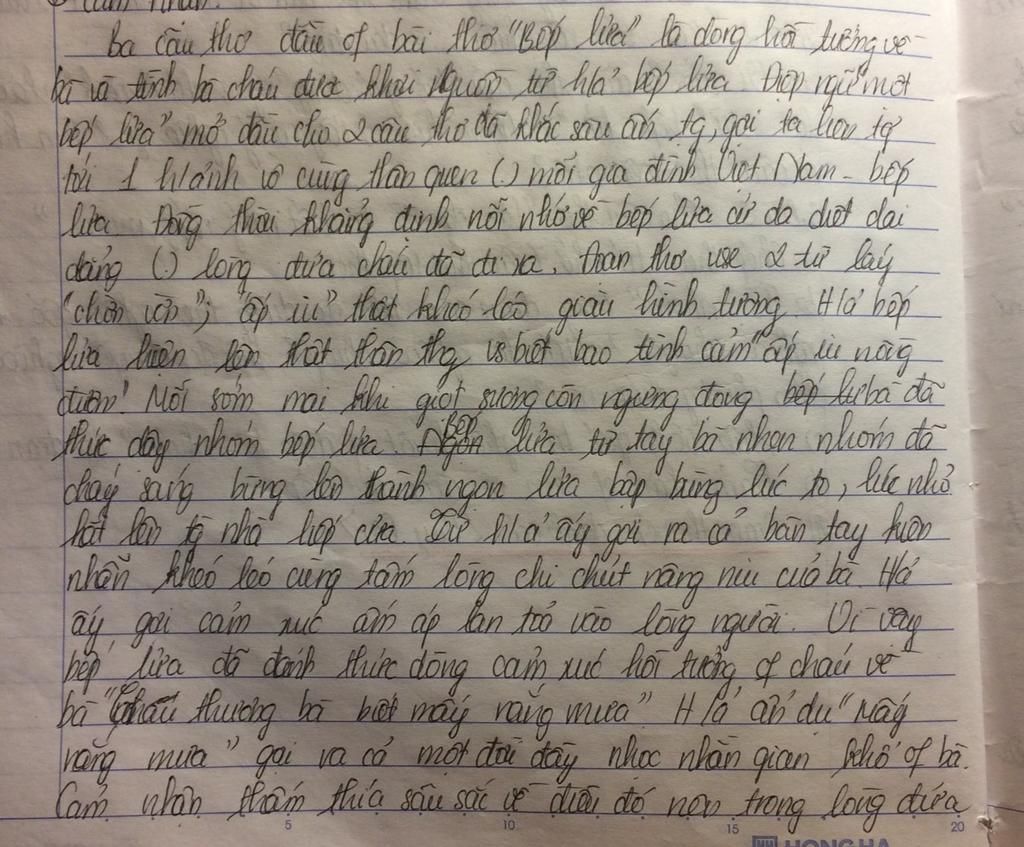 Cảm nhận.
Ba câu thơ đầu of bài thơ "Bếp lửa" là dòng hồi tưởng về
bà và tình bà cháu được khơi nguồn từ h/ả bếp lửa. Điệp ngữ "một
bếp lửa" mở đầu cho 2 câu thơ đã khắc sâu ấn tg, gợi ta liên tg
tới 1 h/ảnh vô cùng thân quen (.) mỗi gia đình Việt Nam - bếp
lửa. Đồng thời khẳng định nỗi nhớ về bếp lửa cứ da diết dai
dẳng (.) lòng đứa cháu đã đi xa. Đoạn thơ use 2 từ láy
"chờn vờn"; "ấp iu" thật khéo léo giàu hình tượng. H/ả bếp
lửa hiện lên thật thân thg vs biết bao tình cảm "ấp iu nồng
đượm". Mỗi sớm mai khi giọt sương còn ngưng đọng bà đã
thức dậy nhóm bếp lửa. Bếp lửa từ tay bà nhen nhóm đã
cháy sáng bừng lên thành ngọn lửa bập bùng lúc to, lúc nhỏ
hắt lên từ nhà bếp cửa. Từ h/ả ấy gợi ra cả bàn tay kiên
nhẫn khéo léo cùng tấm lòng chi chút nâng niu của bà. H/ả
ấy gợi cảm xúc ấm áp lan toả vào lòng người. Vì vậy
bếp lửa đã đánh thức dòng cảm xúc hồi tưởng of cháu về
bà "Cháu thương bà biết mấy nắng mưa" H/ả ẩn dụ "mấy
nắng mưa" gợi ra cả một đời đầy nhọc nhằn gian khổ of bà.
Cảm nhận thấm thía sâu sắc về điều đó nên trong lòng đứa
5 10 15 20
HONG HA